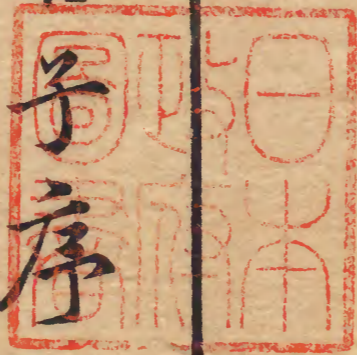 日本
政府
圖書
子序